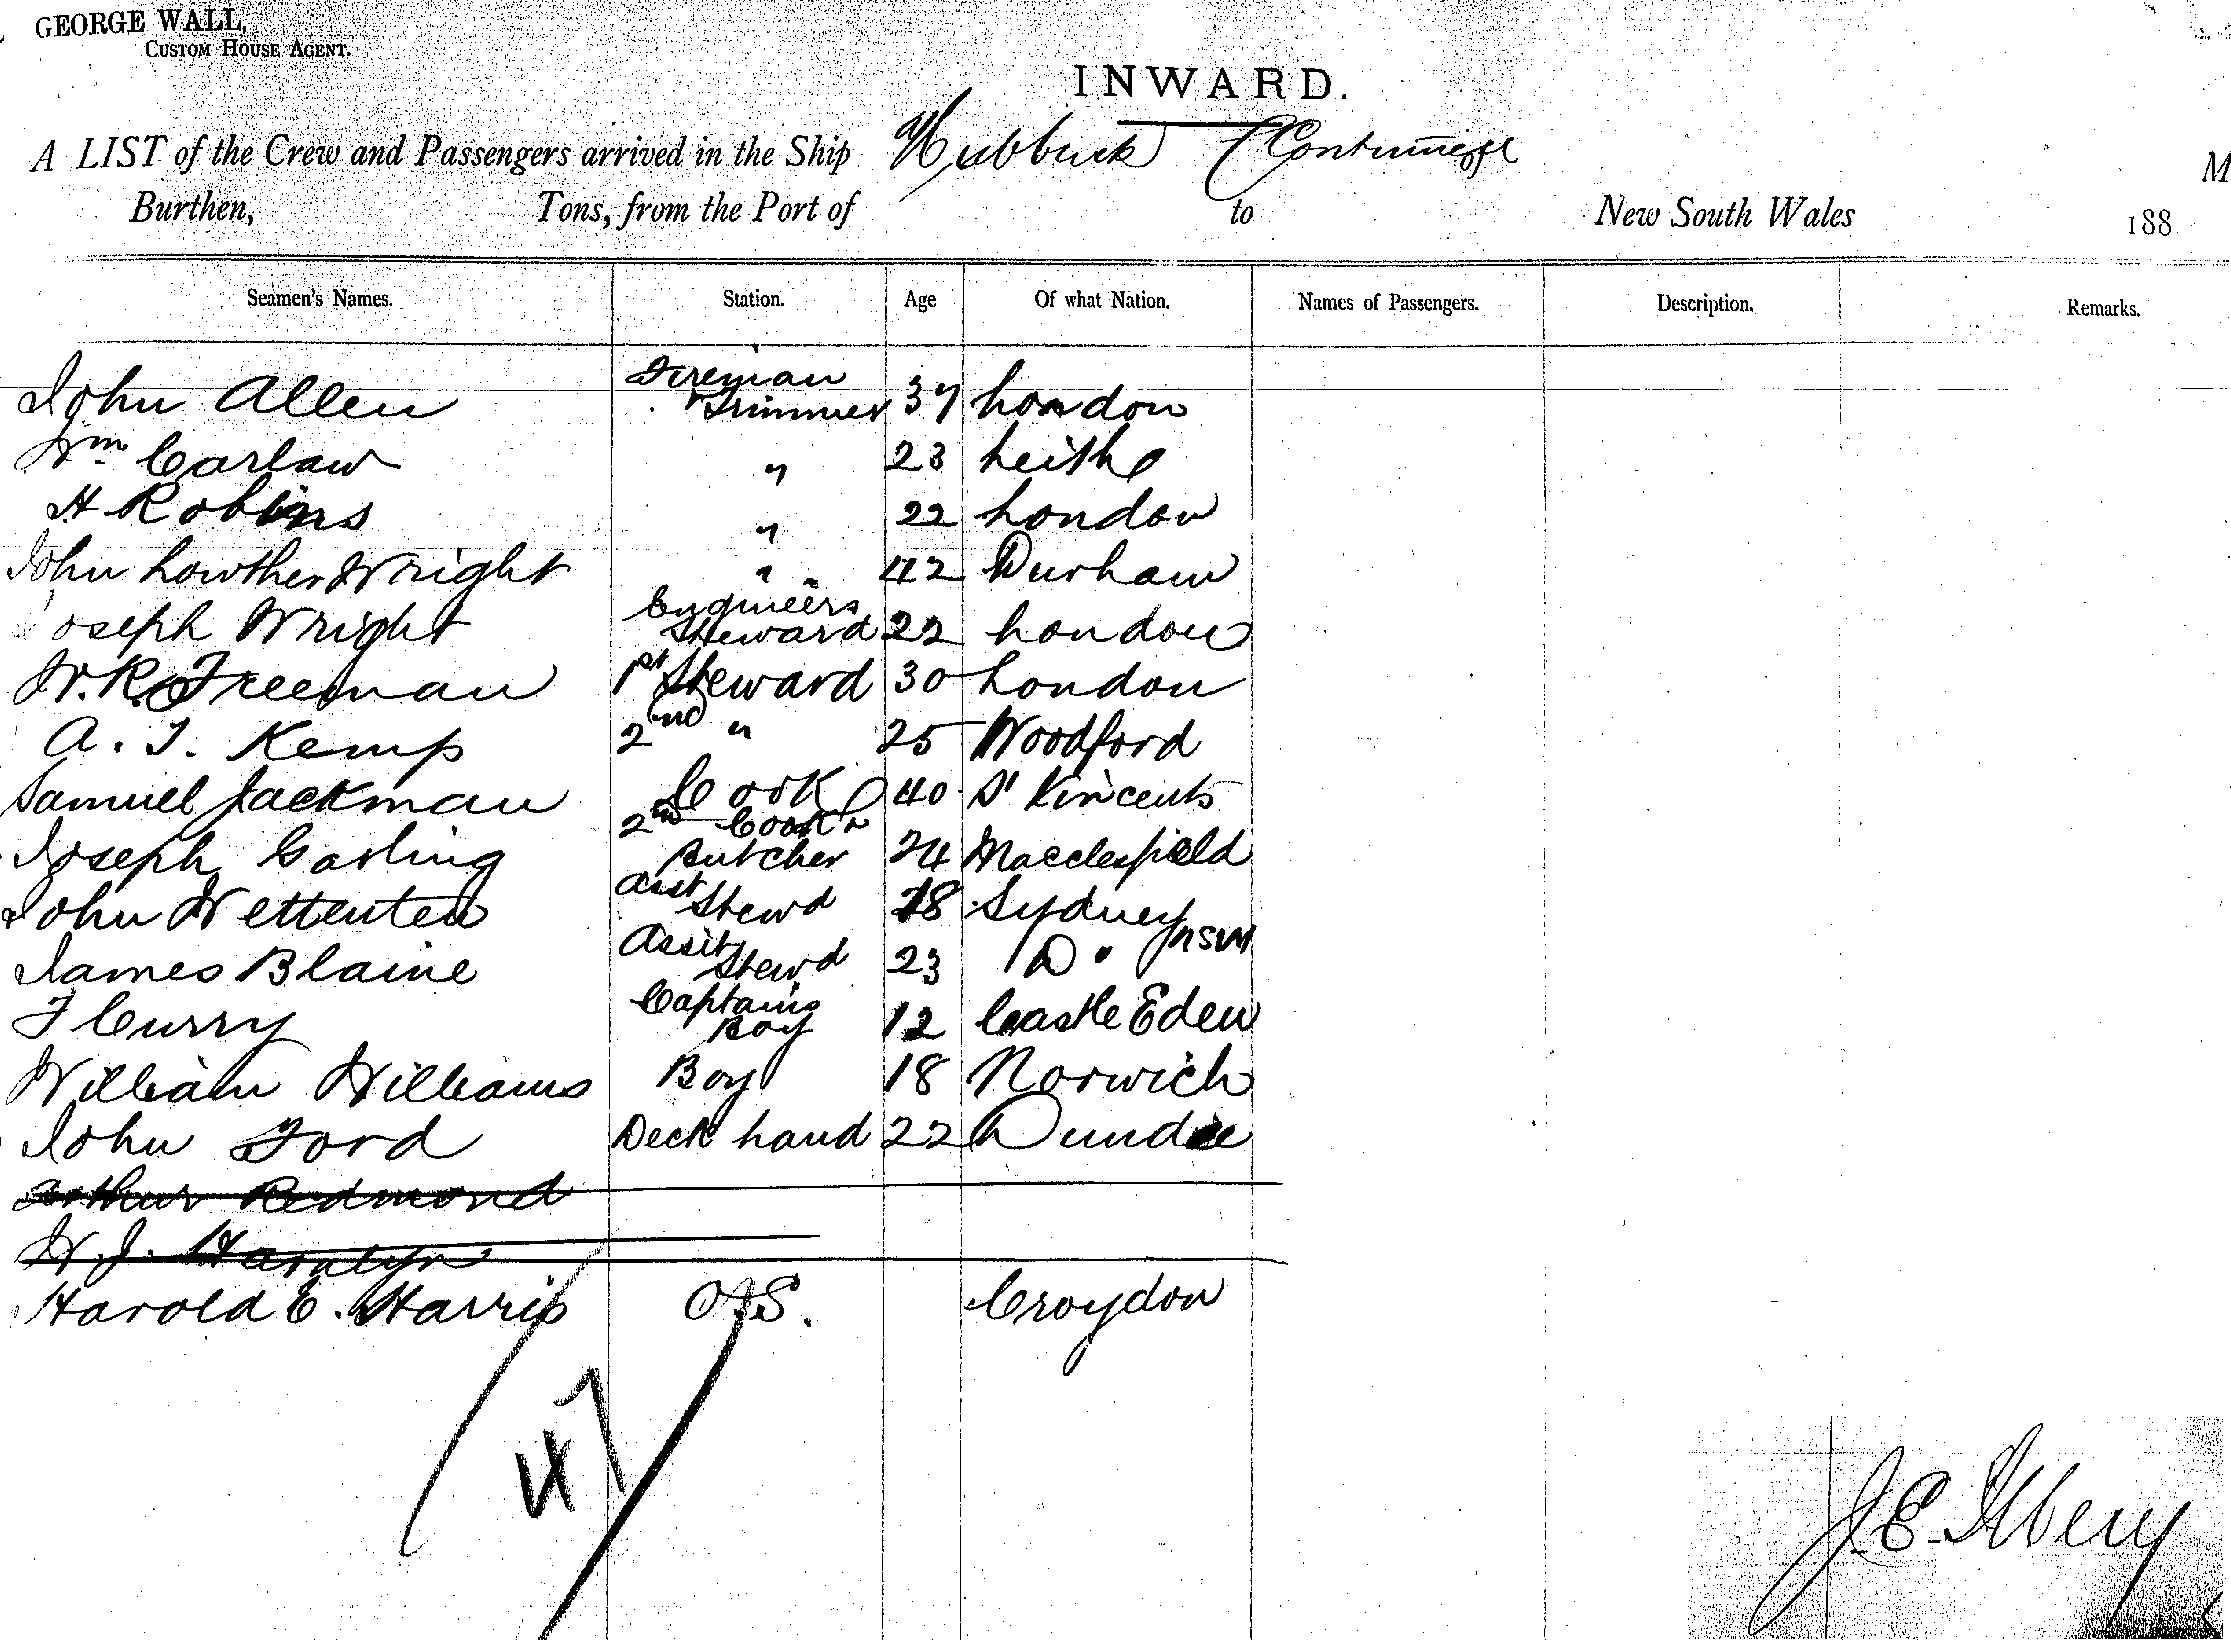 GEORGE WALL,
CUSTOM HOUSE AGENT.
INWARD.
A LIST of the Crew and Passengers arrived in the Ship Hubbuck (Continued) of M
Burthen, Tons, from the Port of to New South Wales 188
Seamen's Names. Station. Age Of what Nation. Names of Passengers. Description. Remarks.
John Allen Fireman & Trimmer 37 London
Wm Carlaw " 23 Leith
H Robins " 22 London
John Lowther Wright " " 42 Durham
Joseph Wright Engineers Steward 22 London
W. R. Freeman 1st Steward 30 London
A. J. Kemp 2nd " 25 Woodford
Samuel Jackman Cook 40 St Vincents
Joseph Garling 2nd Cook & Butcher 24 Macclesfield
John Wettenten Asst Stewd 18 Sydney NSW
James Blaine Assit Stewd 23 Do
F Curry Captains Boy 12 Castle Eden
William Williams Boy 18 Norwich
John Ford Deck hand 22 Dundee
Arthur Redmond
W. J.
Harold E. Harris O.S. Croydon
47
J. E. Ilbery